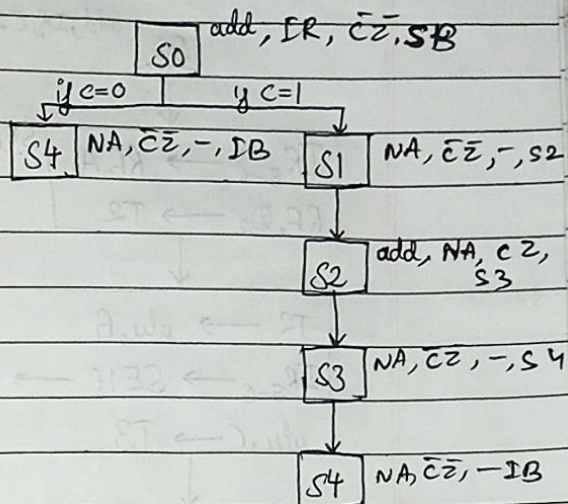 S0 add, IR, C̅Z̅, SB
if C=0 if C=1
S4 NA, C̅Z̅, -, IB S1 NA, C̅Z̅, -, S2
S2 add, NA, CZ,
S3
S3 NA, C̅Z̅, -, S4
S4 NA, C̅Z̅, - IB